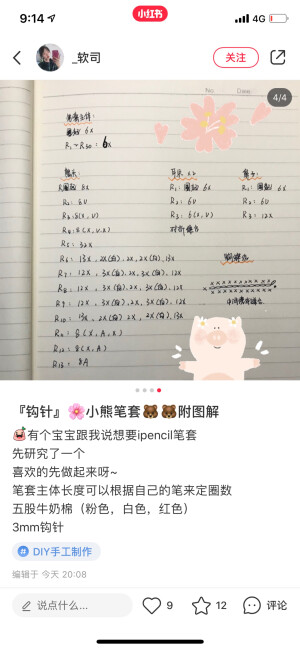 9:14
小红书
4G
_软司
关注
No.
Date
4/4
笔套主体:
圈起 6X
R1~R30: 6X
熊头:
R1圈起 8X
R2: 8V
R3: 8(X,V)
R4: 8(X,V,X)
R5: 32X
R6: 13X, 2X(白), 2X, 2X(白), 13X
R7: 12X, 3X(白), 2X, 3X(白), 12X
R8: 12X, 3X(白), 2X, 3X(白), 12X
R9: 12X, 3X(白), 2X, 3X(白), 12X
R10: 13X, 2X(白), 2X, 2X(白), 13X
R11: 8(X,A,X)
R12: 8(X,A)
R13: 8A
耳朵 x2
R1: 圈起 6X
R2: 6V
R3: 6(X,V)
R1: 圈起 6X
R2: 6V
R3: 12X
『钩针』🌸小熊笔套🐻🐻附图解
有个宝宝跟我说想要ipencil笔套
先研究了一个
喜欢的先做起来呀~
笔套主体长度可以根据自己的笔来定圈数
五股牛奶棉（粉色，白色，红色）
3mm钩针
DIY手工制作
编辑于 今天 20:08
说点什么...
9
12
评论